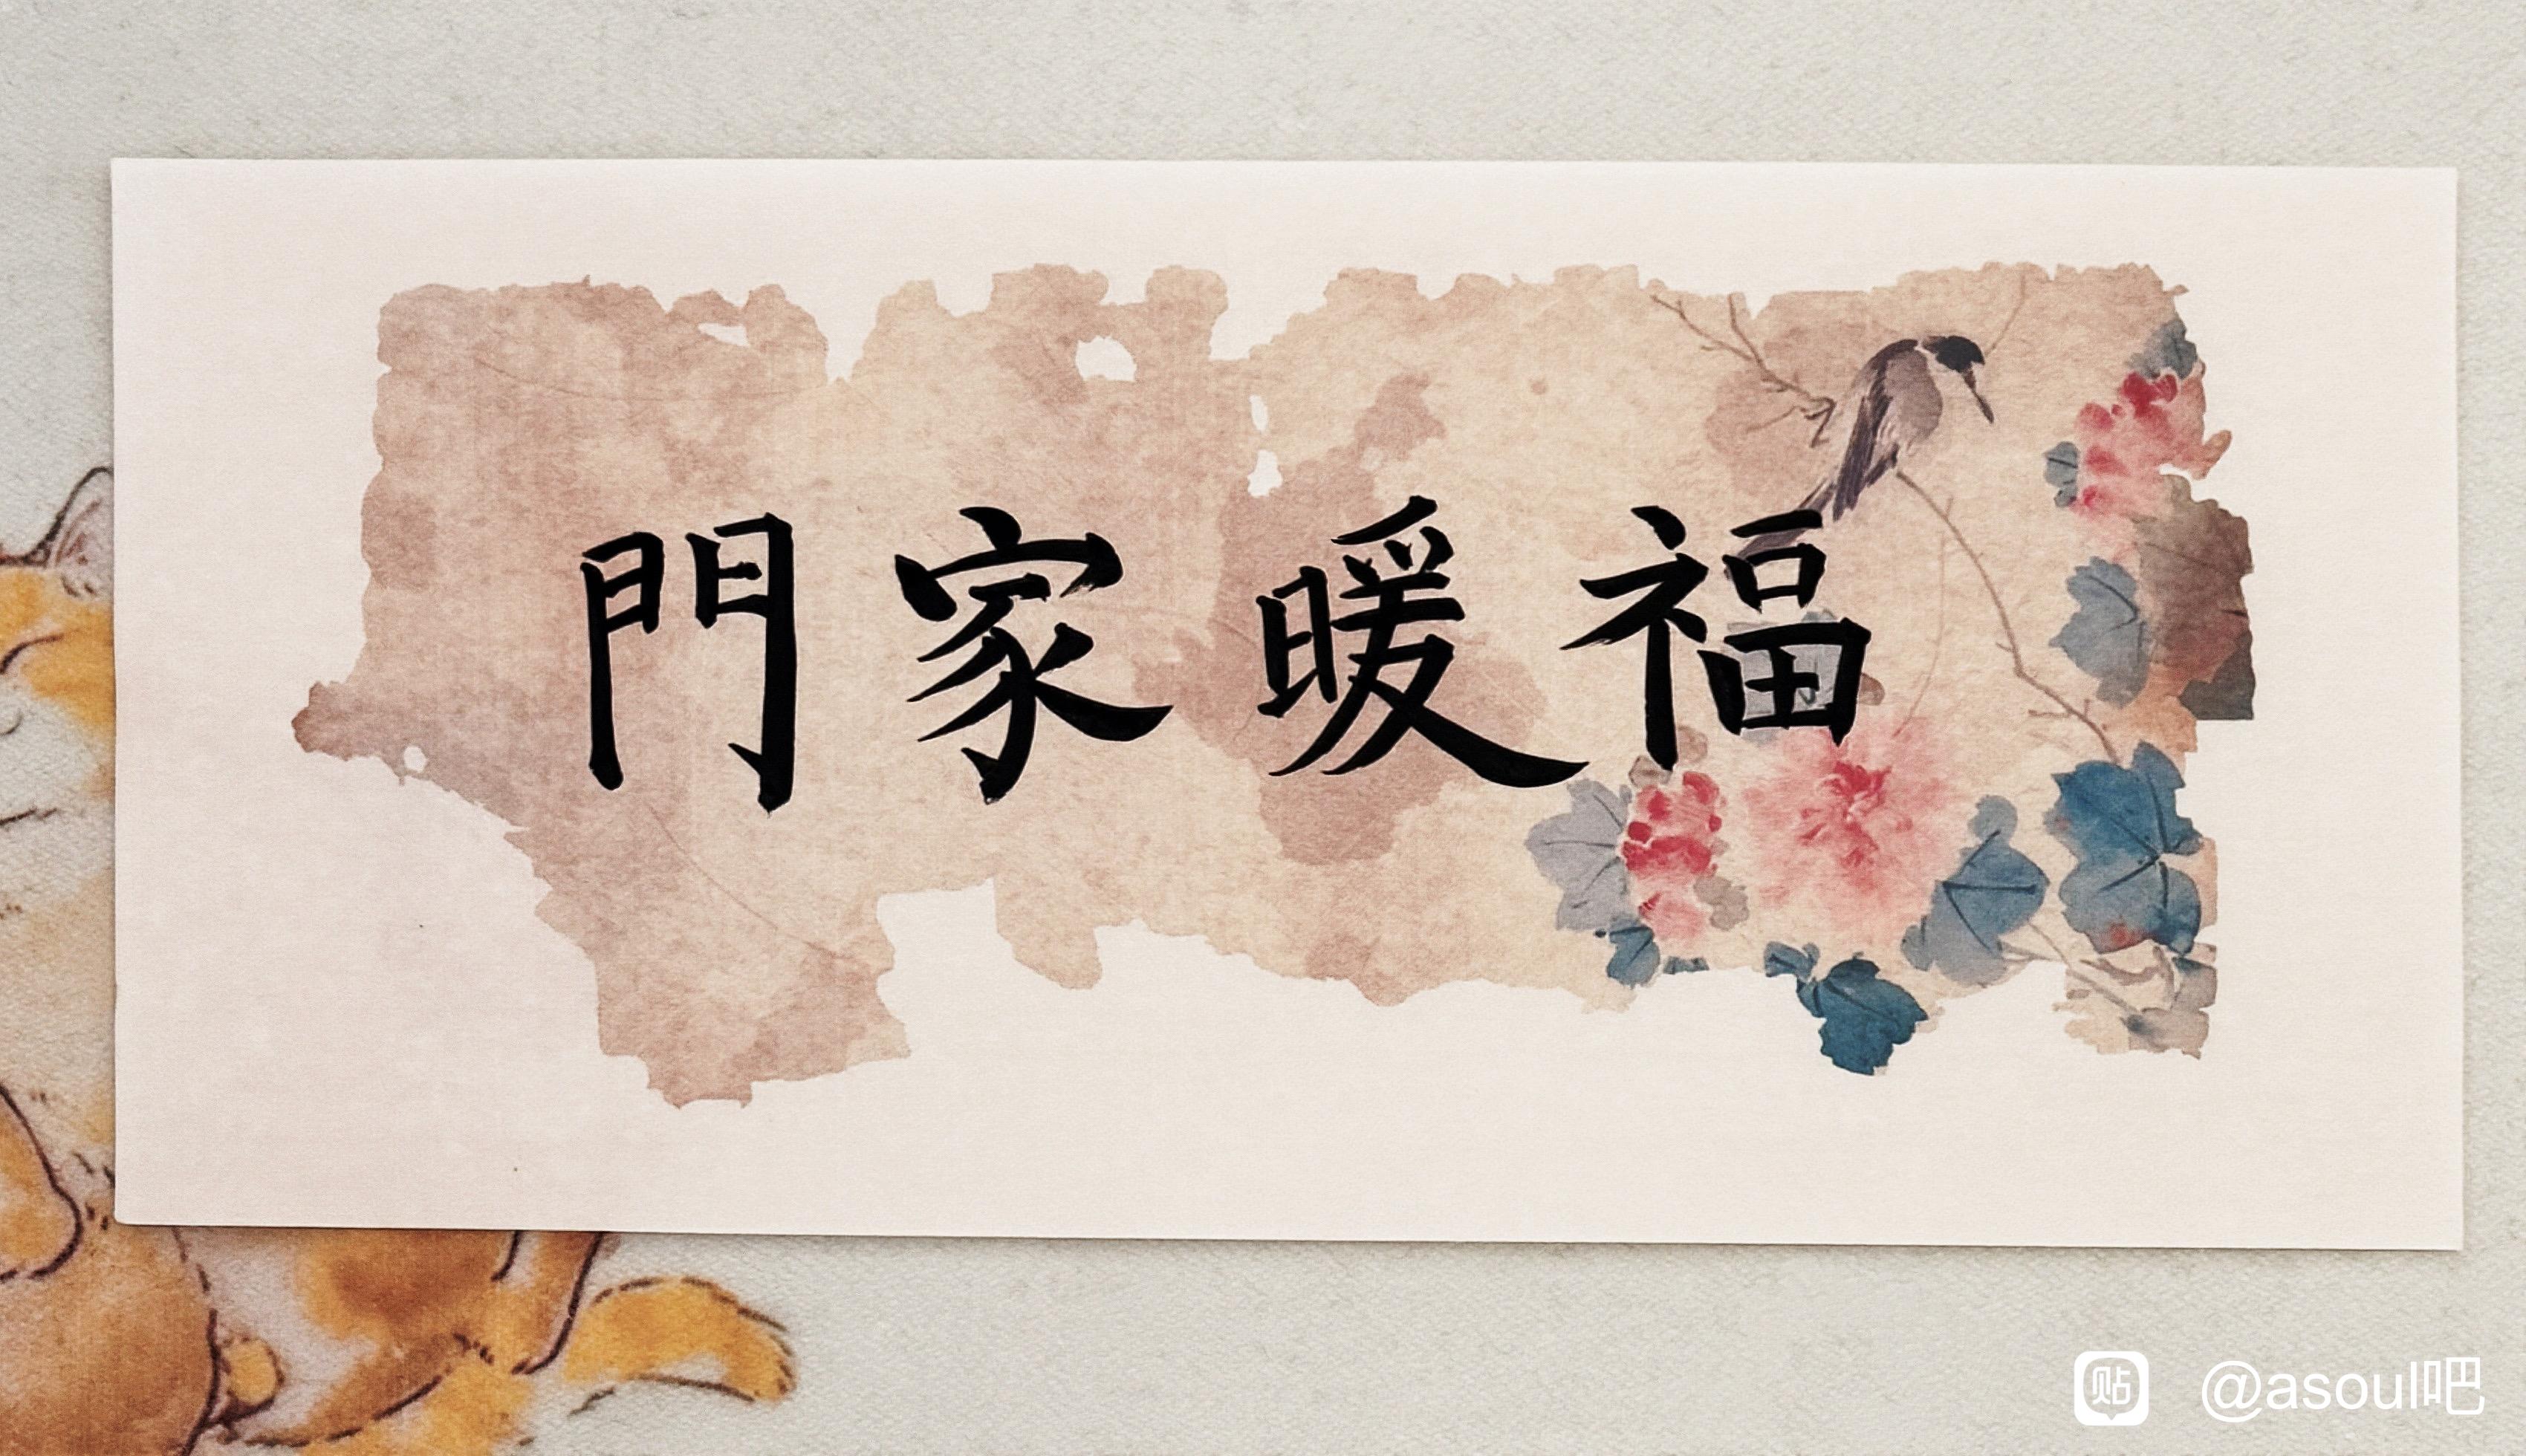 門家暖福
贴 @asoul吧